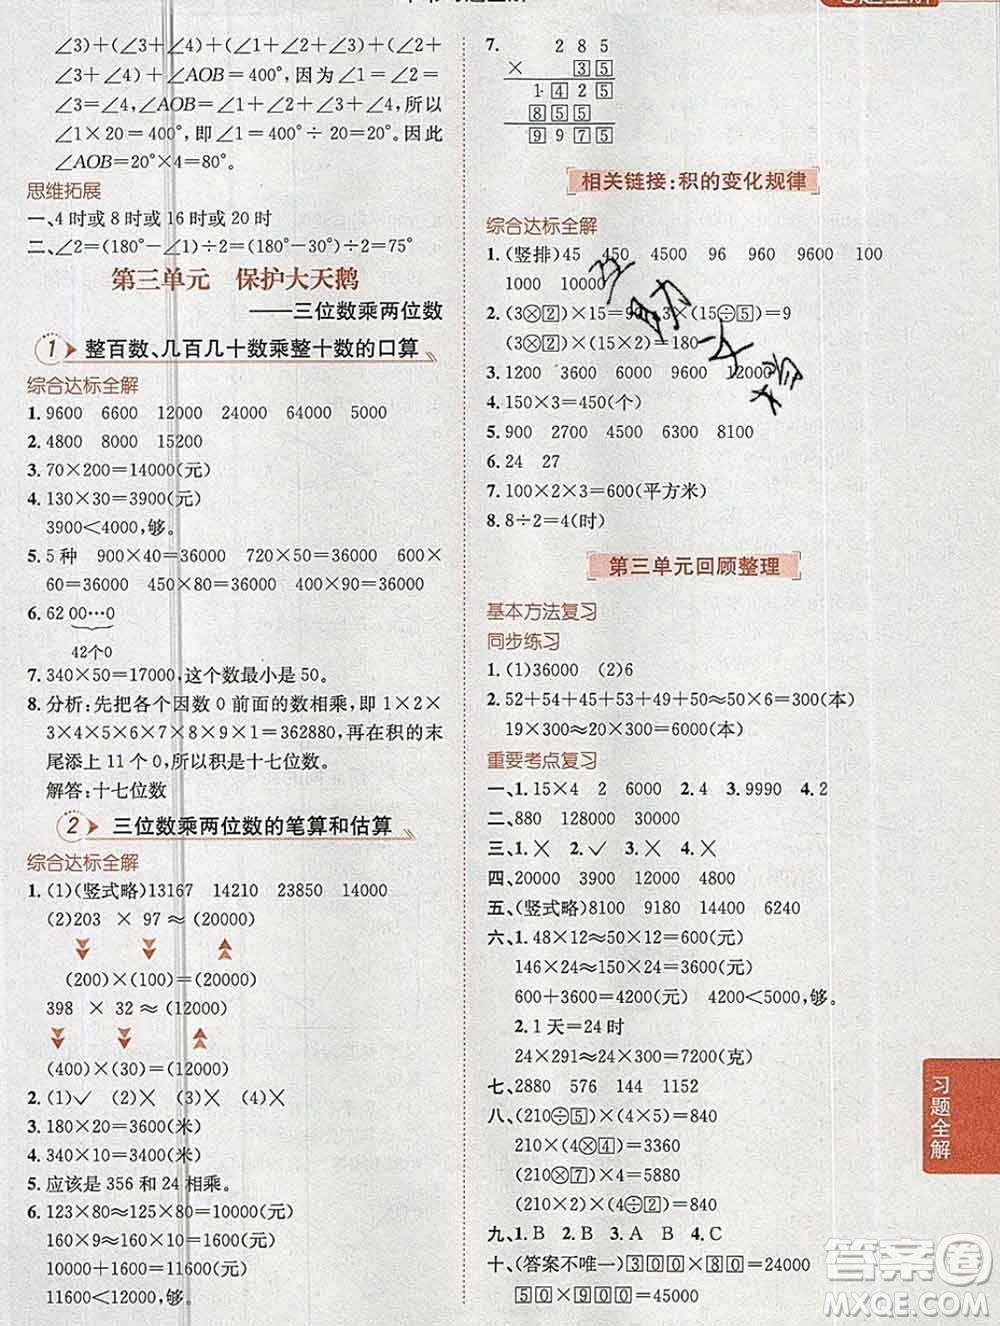 ∠3)+(∠3+∠4)+(∠2+∠3+
∠4)+∠AOB=400°,因为∠1=∠2
=∠3=∠4,∠AOB=∠1+∠2+∠3+∠4,所以
∠1×20=400°,即∠1=400°÷20=20°。因此
∠AOB=20°×4=80°。
思维拓展
一、4时或8时或16时或20时
二、∠2=(180°-∠1)÷2=(180°-30°)÷2=75°
第三单元 保护大天鹅
——三位数乘两位数
1 整百数、几百几十数乘整十数的口算
综合达标全解
1. 9600 6600 12000 24000 64000 5000
2. 4800 8000 15200
3. 70×200=14000(元)
4. 130×30=3900(元)
3900<4000,够。
5. 5种 900×40=36000 720×50=36000
60×600=36000 450×80=36000
6. 62 00…0
42个0
7. 340×50=17000,这个数最小是50。
8. 分析:先把各个因数0前面的数相乘,即1×2×
3×4×5×6×7×8×9=362880,再在积的末
尾添上11个0,所以积是十七位数。
解答:十七位数
2 三位数乘两位数的笔算和估算
综合达标全解
1. (1)(竖式略)13167 14210 23850 14000
(2)203 × 97 ≈ (20000)
(200)×(100)=(20000)
398 × 32 ≈ (12000)
(400)×(30)=(12000)
2. (1)✓ (2)× (3)× (4)×
3. 180×20=3600(米)
4. 340×10=3400(米)
5. 应该是356和24相乘。
6. 123×80≈125×80=10000(元)
160×10=1600(元)
10000+1600=11600(元)
11600<12000,够。
7. 2 8 5
× 3 5
1 4 2 5
8 5 5
9 9 7 5
相关链接:积的变化规律
综合达标全解
1. (竖排)45 450 4500 96 960 9600 100
1000 10000
2. (3×2)×15=90 3×(15÷5)=9
(3×2)×(15×2)=180
3. 1200 3600 6000 9600 12000
4. 150×3=450(个)
5. 900 2700 4500 6300 8100
6. 24 27
7. 100×2×3=600(平方米)
8. 8÷2=4(时)
第三单元回顾整理
基本方法复习
同步练习
1. (1)36000 (2)6
2. 52+54+45+53+49+50≈50×6=300(本)
19×300≈20×300=6000(本)
重要考点复习
一、1. 15×4 2 6000 2. 4 3. 9990 4. 2
二、880 128000 30000
三、1. × 2. ✓ 3. × 4. ×
四、20000 3900 12000 4800
五、(竖式略)8100 9180 14400 6240
六、1. 48×12≈50×12=600(元)
146×24≈150×24=3600(元)
600+3600=4200(元) 4200<5000,够。
2. 1天=24时
24×291≈24×300=7200(克)
七、2880 576 144 1152
八、(210÷5)×(4×5)=840
210×(4×4)=3360
(210×7)×4=5880
(210×2)×(4÷2)=840
九、1. B 2. B 3. A B 4. C
十、(答案不唯一)300×80=24000
50×900=45000
习题全解
答案圈
MXQE.COM